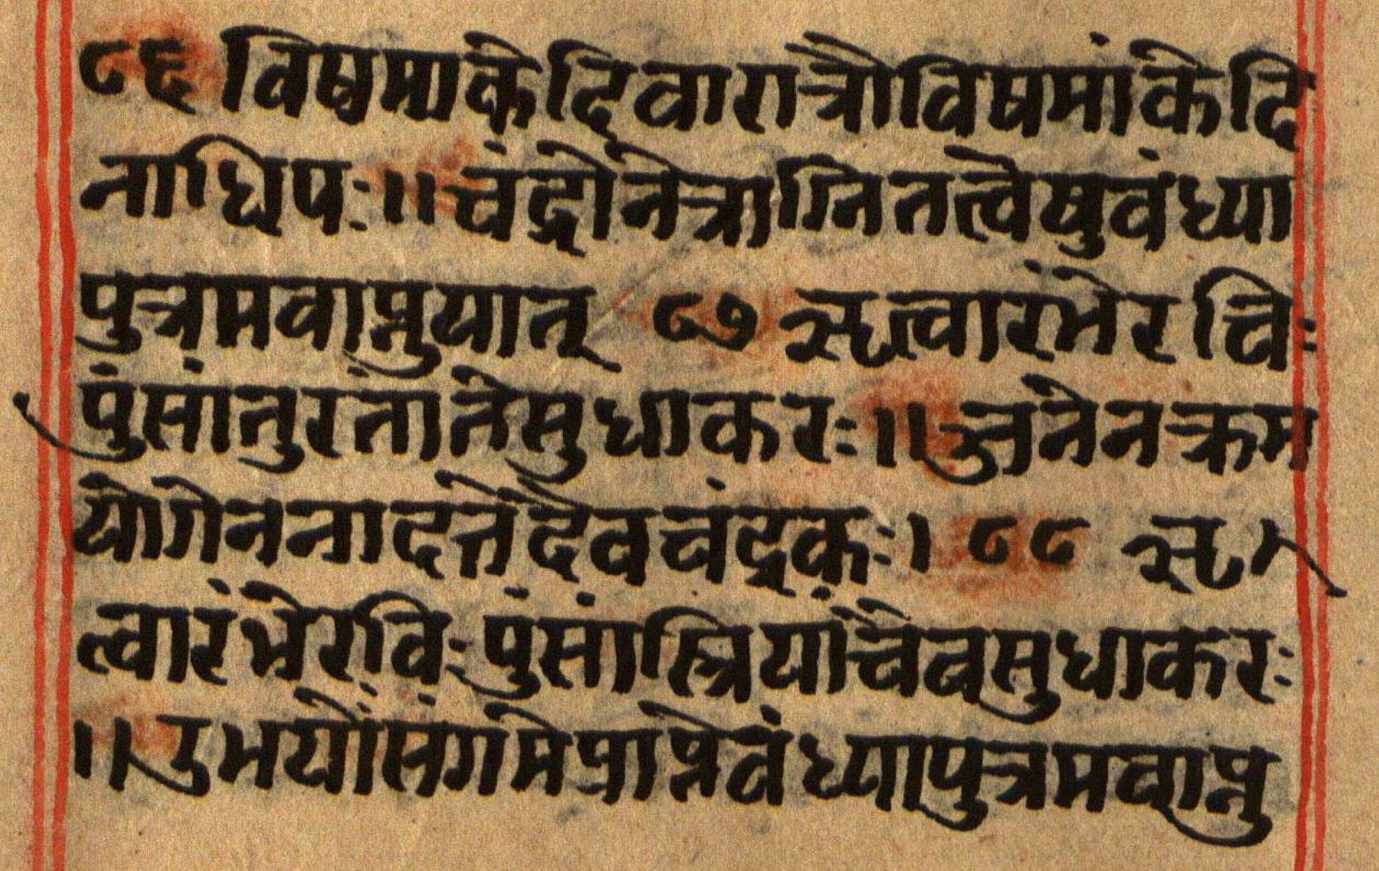 ८६ विषमांके दिवारात्रौ विषमांके दि
नाधिपः ॥ चंद्रो नेत्राग्नितत्वेषु वंध्या
पुत्रमवाप्नुयात् ८७ ऋत्वारंभे रविः
पुंसां तु रतांते सुधाकरः ॥ अनेन क्रम
योगेन नादत्ते दैवचंद्रकः । ८८ ऋ
त्वारंभे रविः पुंसां स्त्रियां चैव सुधाकरः
॥ उभयोः संगमे प्राप्ते वंध्या पुत्रमवाप्नु